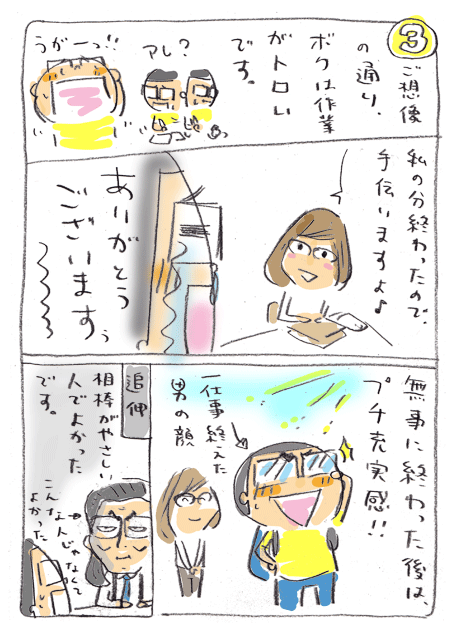 3
ご想像
の通り、
ボクは作業
がトロい
です。
アレ?
うがーっ!!
私の分終わったので、
手伝いますよ♪
ありがとう
ございますぅ
無事に終わった後は、
プチ充実感!!
一仕事終えた
男の顔
追伸
相棒がやさしい
人でよかった
です。
なんじゃなくて
よかった